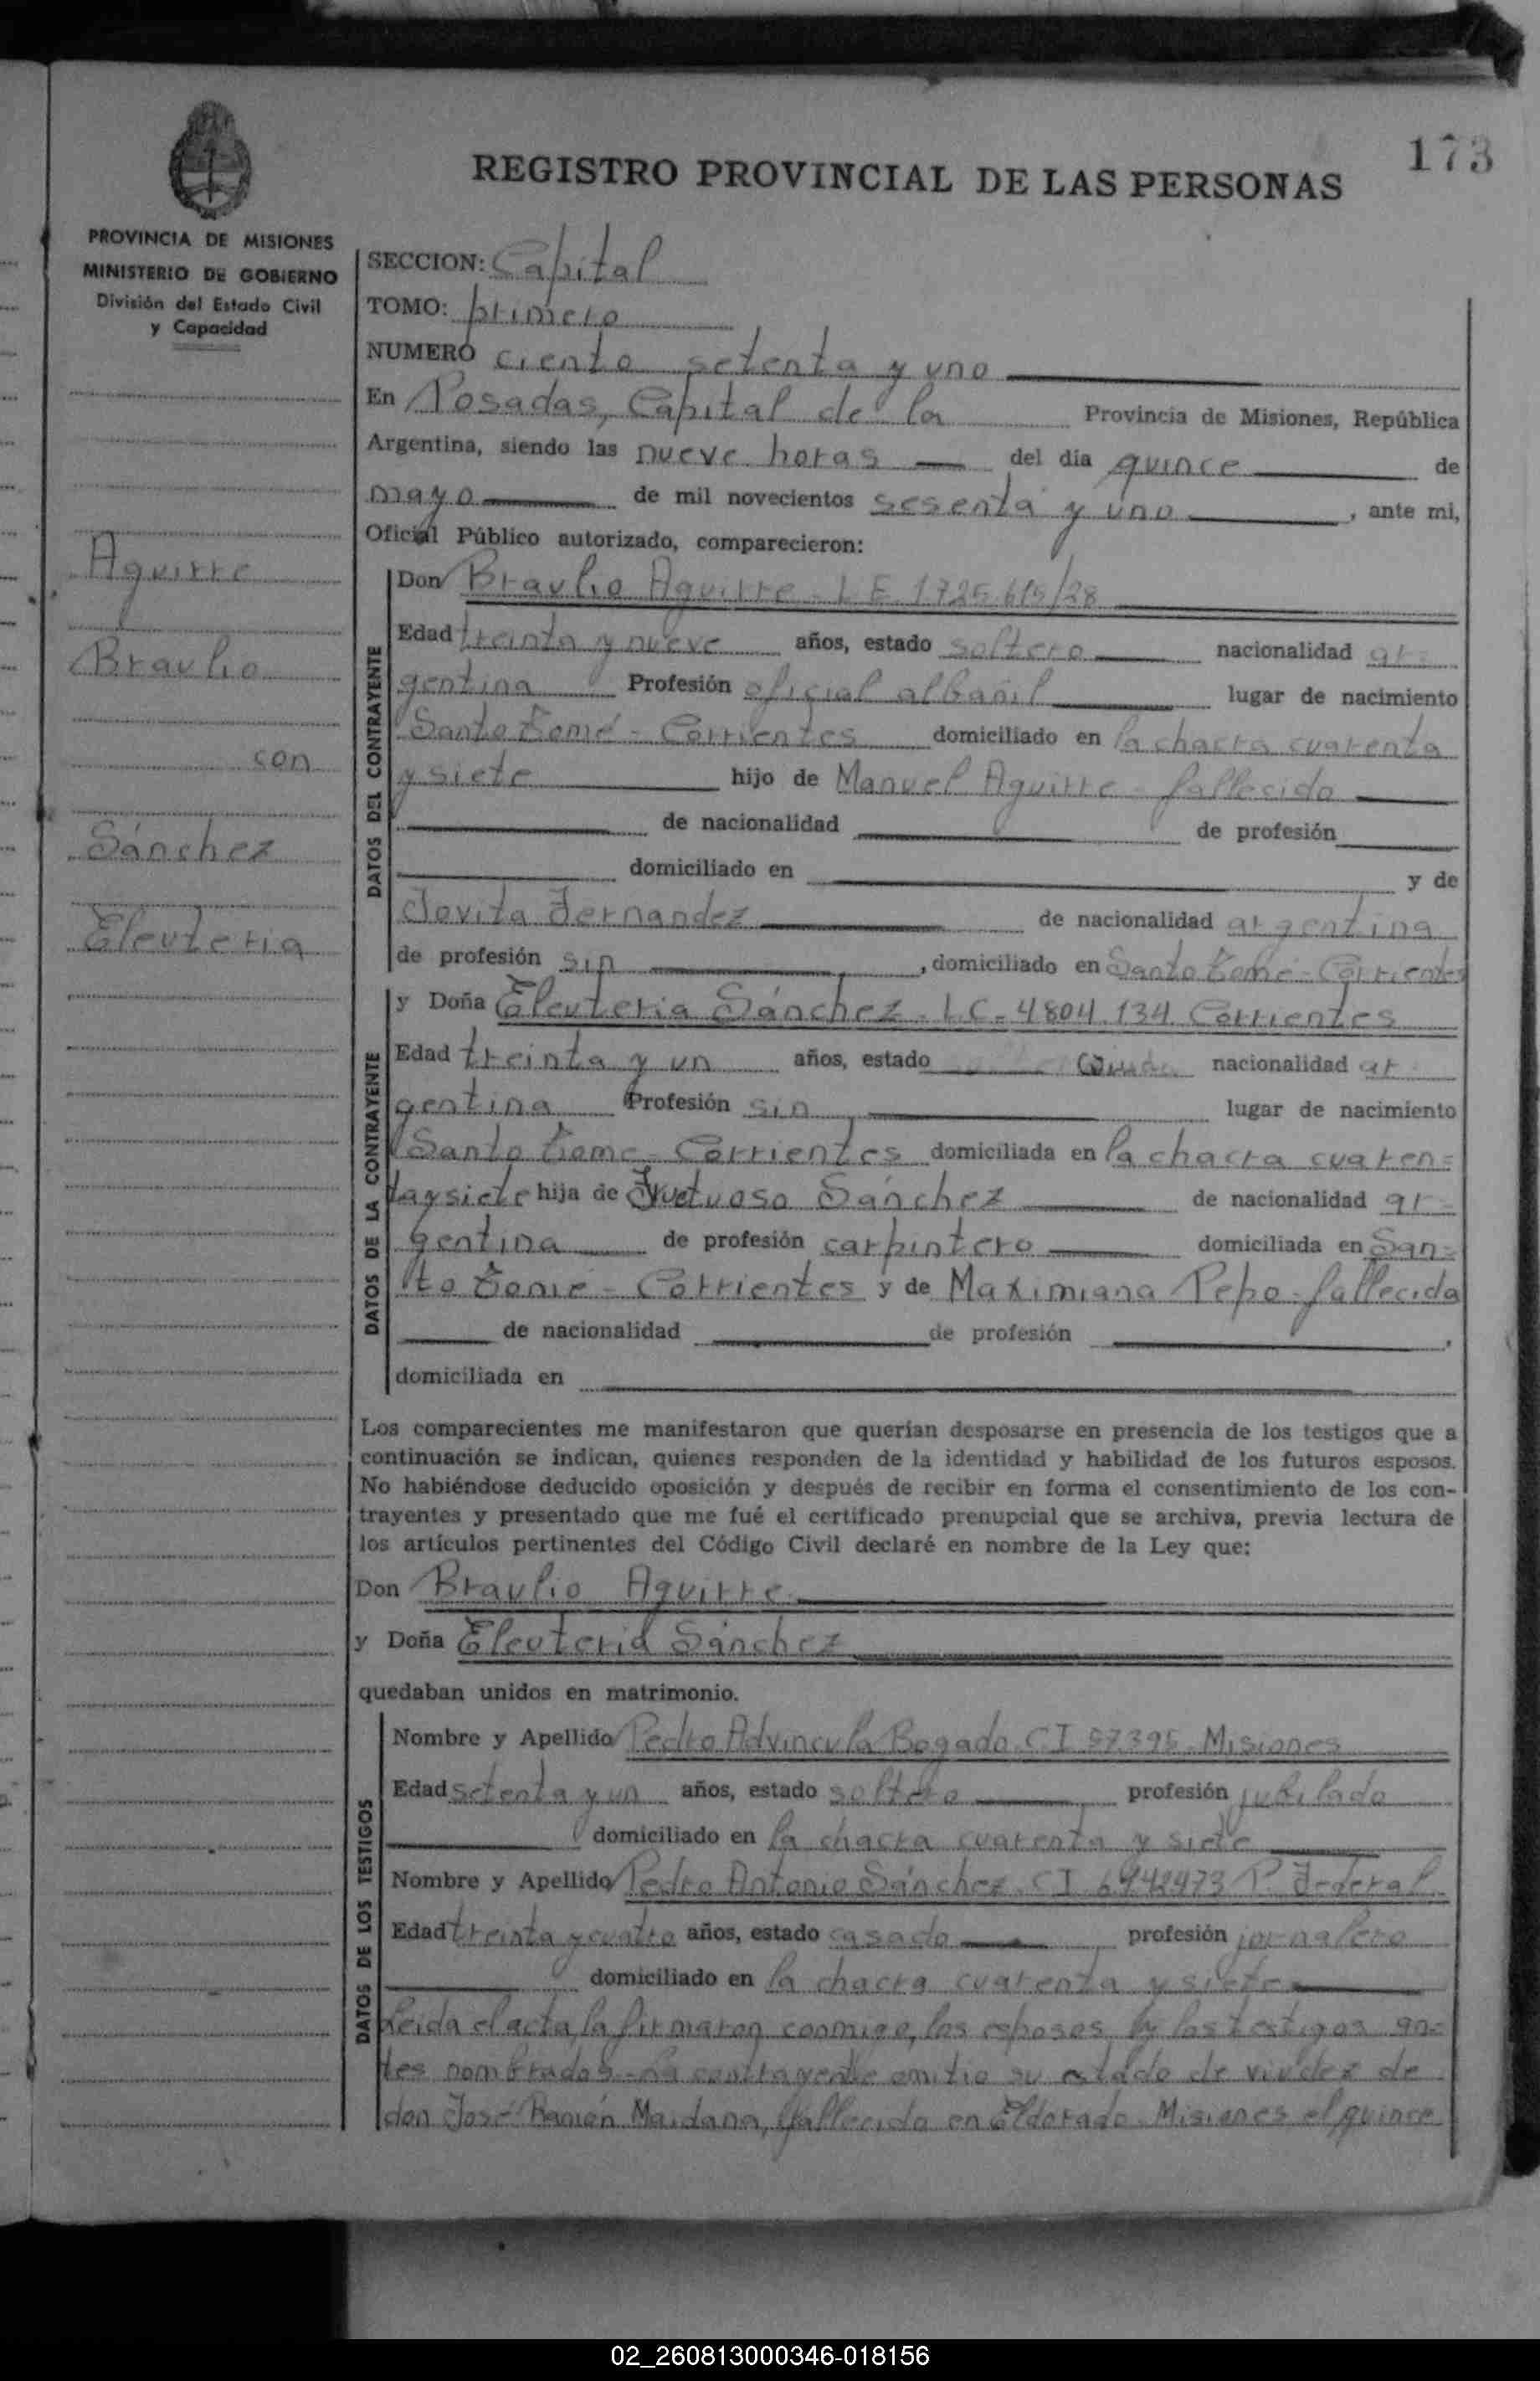 173
REGISTRO PROVINCIAL DE LAS PERSONAS
PROVINCIA DE MISIONES
MINISTERIO DE GOBIERNO
División del Estado Civil
y Capacidad
Aguirre
Braulio
con
Sánchez
Eleuteria
SECCION: Capital
TOMO: primero
NUMERO ciento setenta y uno
En Posadas, Capital de la Provincia de Misiones, República
Argentina, siendo las nueve horas del día quince de
mayo de mil novecientos sesenta y uno, ante mi,
Oficial Público autorizado, comparecieron:
DATOS DEL CONTRAYENTE
Don Braulio Aguirre - L E 1725.615/28
Edad treinta y nueve años, estado soltero nacionalidad ar-
gentina Profesión oficial albañil lugar de nacimiento
Santo Tomé - Corrientes domiciliado en la chacra cuarenta
y siete hijo de Manuel Aguirre - fallecido
de nacionalidad de profesión
domiciliado en y de
Jovita Fernandez de nacionalidad argentina
de profesión sin, domiciliado en Santo Tomé - Corrientes
DATOS DE LA CONTRAYENTE
y Doña Eleuteria Sánchez - L C - 4804.134 Corrientes
Edad treinta y un años, estado Viuda nacionalidad ar-
gentina Profesión sin lugar de nacimiento
Santo Tomé - Corrientes domiciliada en la chacra cuaren=
ta y siete hija de Fructuoso Sánchez de nacionalidad ar-
gentina de profesión carpintero domiciliada en San=
to Tomé - Corrientes y de Maximiana Pepo - fallecida
de nacionalidad de profesión ,
domiciliada en
Los comparecientes me manifestaron que querían desposarse en presencia de los testigos que a
continuación se indican, quienes responden de la identidad y habilidad de los futuros esposos.
No habiéndose deducido oposición y después de recibir en forma el consentimiento de los con-
trayentes y presentado que me fué el certificado prenupcial que se archiva, previa lectura de
los artículos pertinentes del Código Civil declaré en nombre de la Ley que:
Don Braulio Aguirre
y Doña Eleuteria Sánchez
quedaban unidos en matrimonio.
DATOS DE LOS TESTIGOS
Nombre y Apellido Pedro Advincula Bogado - C I 57.395 - Misiones
Edad setenta y un años, estado soltero profesión jubilado
domiciliado en la chacra cuarenta y siete
Nombre y Apellido Pedro Antonio Sánchez - C I 6942473 P. Federal
Edad treinta y cuatro años, estado casado profesión jornalero
domiciliado en la chacra cuarenta y siete
Leida el acta, la firmaron conmigo, los esposos y los testigos an=
tes nombrados - La contrayente omitio su estado de viudez de
don José Ramón Maidana, fallecido en Eldorado - Misiones el quince
02_260813000346-018156